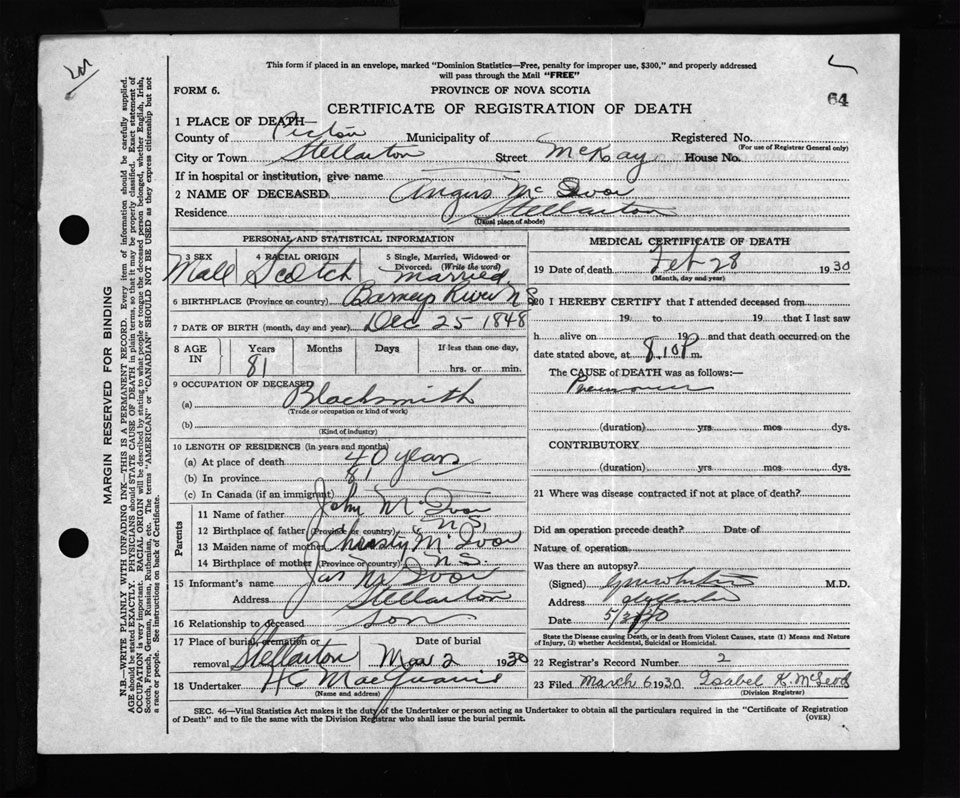 This form if placed in an envelope, marked "Dominion Statistics—Free, penalty for improper use, $300," and properly addressed
will pass through the Mail "FREE"
FORM 6.
PROVINCE OF NOVA SCOTIA
64
CERTIFICATE OF REGISTRATION OF DEATH
1 PLACE OF DEATH—
County of Pictou Municipality of Registered No.
(For use of Registrar General only)
City or Town Stellarton Street McKay House No.
If in hospital or institution, give name
2 NAME OF DECEASED Angus McIvor
Residence Stellarton
(Usual place of abode)
PERSONAL AND STATISTICAL INFORMATION
3 SEX 4 RACIAL ORIGIN 5 Single, Married, Widowed or
Divorced. (Write the word)
Male Scotch Married
6 BIRTHPLACE (Province or country) Barneys River N S
7 DATE OF BIRTH (month, day and year) Dec 25 1848
8 AGE IN Years Months Days If less than one day,
81 hrs. or min.
9 OCCUPATION OF DECEASED
(a) Blacksmith
(Trade or occupation or kind of work)
(b)
(Kind of industry)
10 LENGTH OF RESIDENCE (in years and months)
(a) At place of death 40 years
(b) In province 81
(c) In Canada (if an immigrant)
Parents
11 Name of father John McIvor
12 Birthplace of father (Province or country) N S,
13 Maiden name of mother Christy McIvor
14 Birthplace of mother (Province or country) N S.
15 Informant's name Jas McIvor
Address Stellarton
16 Relationship to deceased Son
17 Place of burial, cremation or removal Stellarton
Date of burial Mar 2 1930
18 Undertaker H C MacQuarrie
(Name and address)
MEDICAL CERTIFICATE OF DEATH
19 Date of death Feb 28 1930
(Month, day and year)
20 I HEREBY CERTIFY that I attended deceased from
19 to 19 that I last saw
h alive on 19 and that death occurred on the
date stated above, at 8.10 P. m.
The CAUSE of DEATH was as follows:—
Pneumonia
(duration) yrs mos dys.
CONTRIBUTORY
(duration) yrs mos dys.
21 Where was disease contracted if not at place of death?
Did an operation precede death? Date of
Nature of operation
Was there an autopsy?
(Signed) M.D.
Address Stellarton
Date 5/3/30
State the Disease causing Death, or in death from Violent Causes, state (1) Means and Nature
of Injury, (2) whether Accidental, Suicidal or Homicidal.
22 Registrar's Record Number 2
23 Filed March 6 1930 Isabel K. McLeod
(Division Registrar)
SEC. 46—Vital Statistics Act makes it the duty of the Undertaker or person acting as Undertaker to obtain all the particulars required in the "Certificate of Registration
of Death" and to file the same with the Division Registrar who shall issue the burial permit.
(OVER)
MARGIN RESERVED FOR BINDING
N.B.—WRITE PLAINLY WITH UNFADING INK—THIS IS A PERMANENT RECORD. Every item of information should be carefully supplied.
AGE should be stated EXACTLY. PHYSICIANS should STATE CAUSE OF DEATH in plain terms, so that it may be properly classified. Exact statement of
OCCUPATION is very important. RACIAL ORIGIN will be described by stating to what people or tongue the deceased person belonged, whether English, Irish,
Scotch, French, German, Russian, Ruthenian, etc. The terms "AMERICAN" or "CANADIAN" SHOULD NOT BE USED as they express citizenship but not
a race or people. See instructions on back of Certificate.